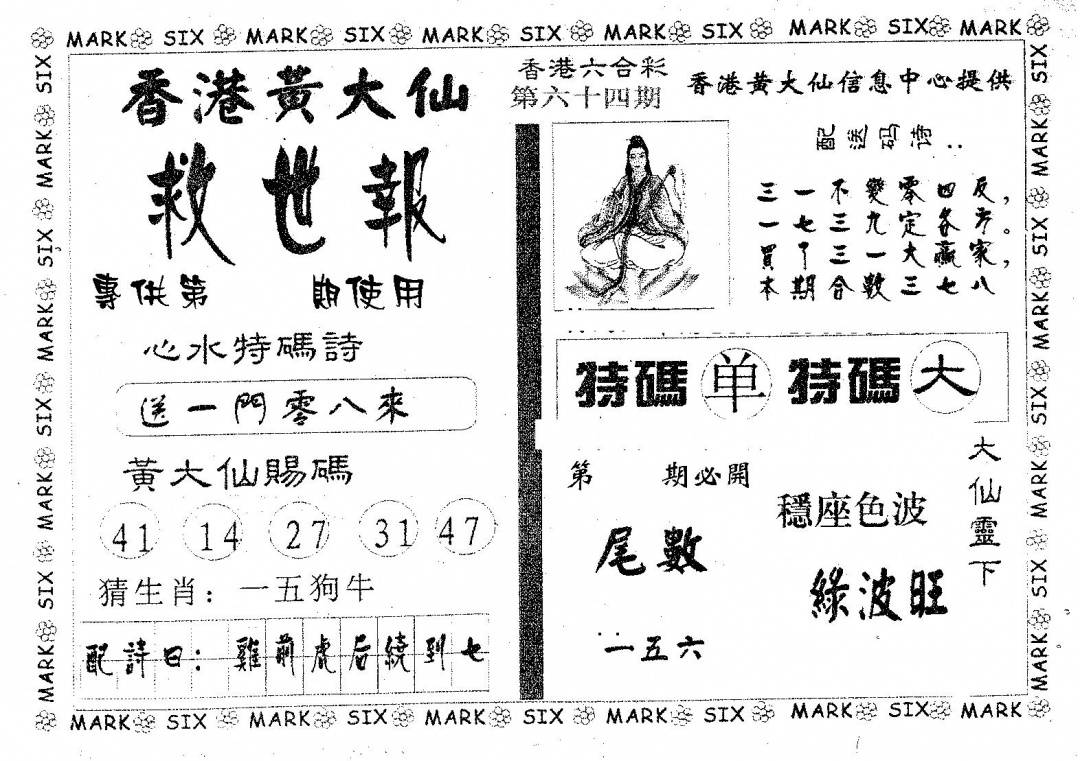 MARK SIX MARK SIX MARK SIX MARK SIX MARK SIX MARK
香港黃大仙
救世報
專供第 期使用
心水特碼詩
送一門零八來
黃大仙賜碼
41 14 27 31 47
猜生肖：一五狗牛
配詩曰：雞前虎后繞到七
香港六合彩
第六十四期
香港黃大仙信息中心提供
配送码诗：
三一不變零四反，
一七三九定各方。
買了三一大贏家，
本期合數三七八
特碼 单 特碼 大
第 期必開
尾數
一五六
穩座色波
綠波旺
大仙靈下
SIX MARK SIX MARK SIX MARK SIX MARK
SIX MARK SIX MARK SIX MARK SIX MARK
MARK SIX MARK SIX MARK SIX MARK SIX MARK SIX MARK